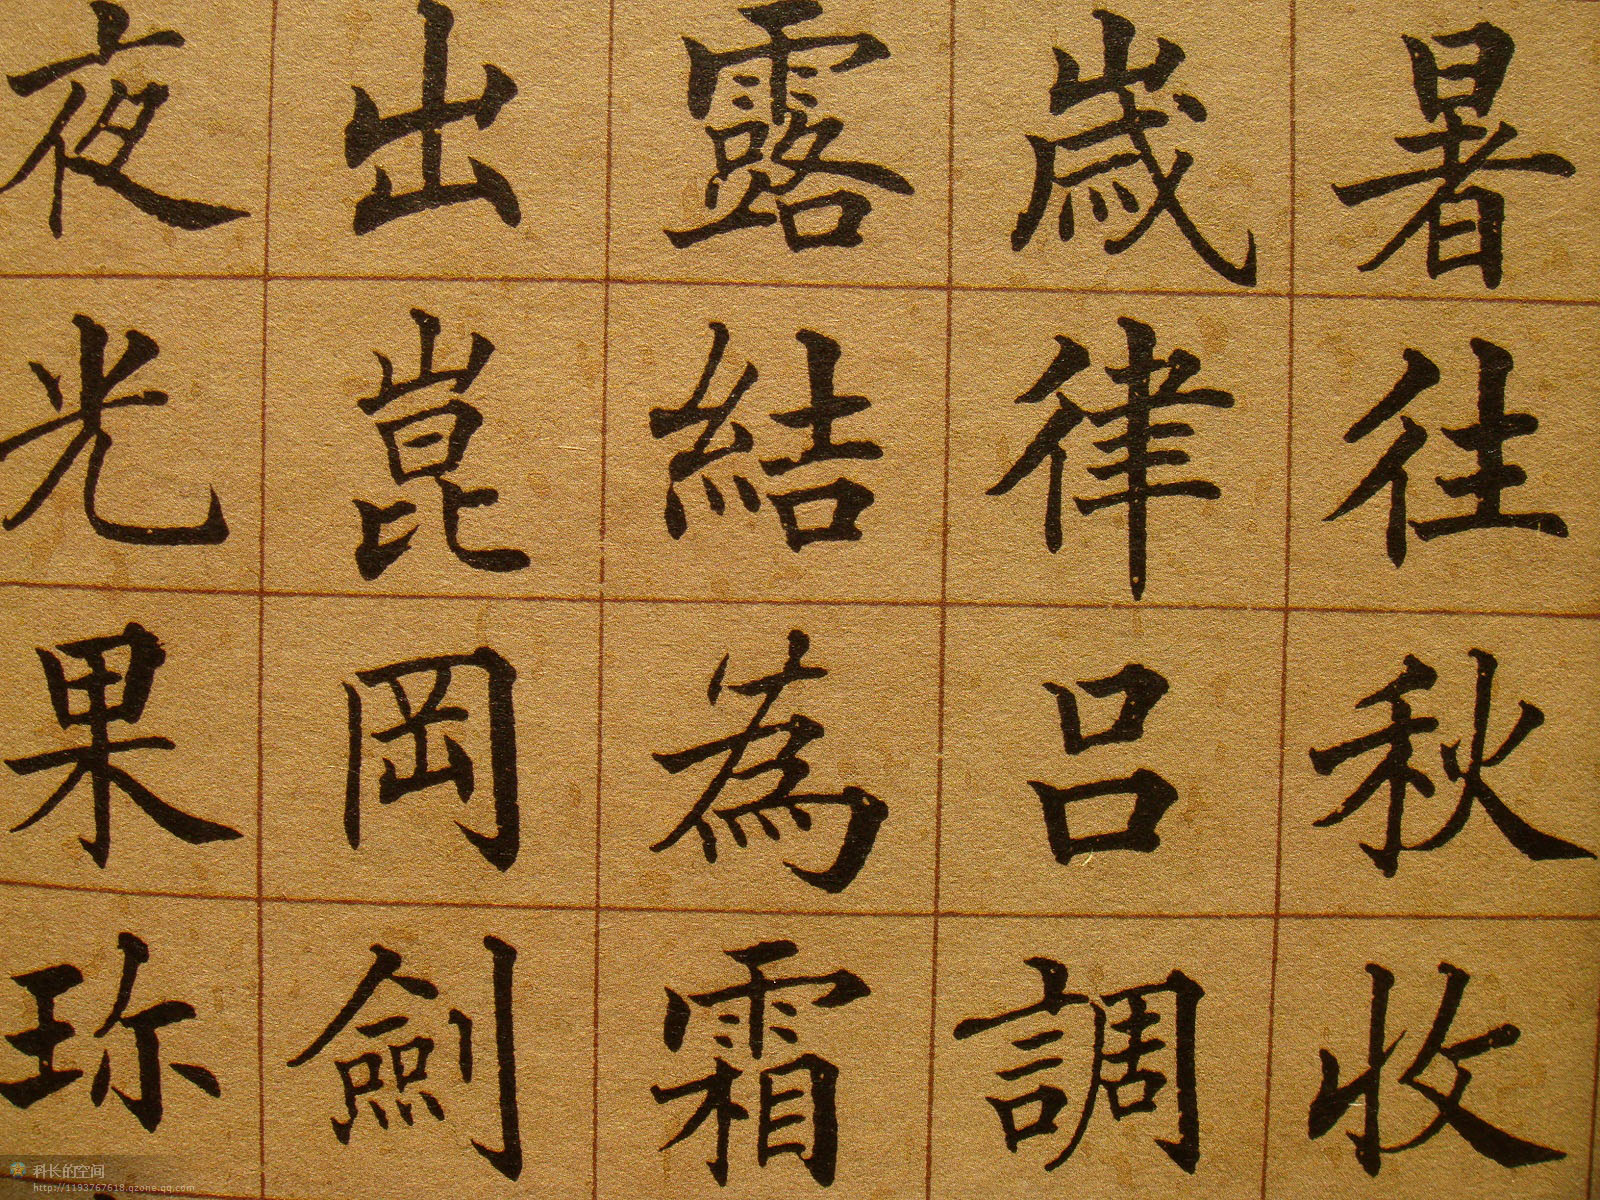 暑往秋收
歲律吕調
露結為霜
出崑岡劍
夜光果珎
科长的空间
http://1193767618.qzone.qq.com